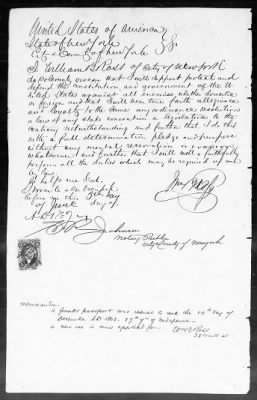 United States of America
State of New York
City & County of New York SS.
I William B Ross of city of New York
do solemnly swear that I will support protect and
defend the constitution and government of the Uni
ted States against all enemies, whether domestic
or foreign and that I will bear true faith allegiance
and loyalty to the same any ordinance resolution
or law of any state convention or legislature to the
contrary notwithstanding and further that I do this
with a full determination pledge and purpose
without any mental reservation or evasion
whatsoever and further that I will well & faithfully
perform all the duties which may be required of me
by law
So help me God
Sworn to & subscribed
before me this day
of
A.D. 186
Notary Public
City & County of New York
Memorandum
A former passport was issued to me the 10th day of
December A.D. 1862. 87th yr of Independence
a new one is now applied for.